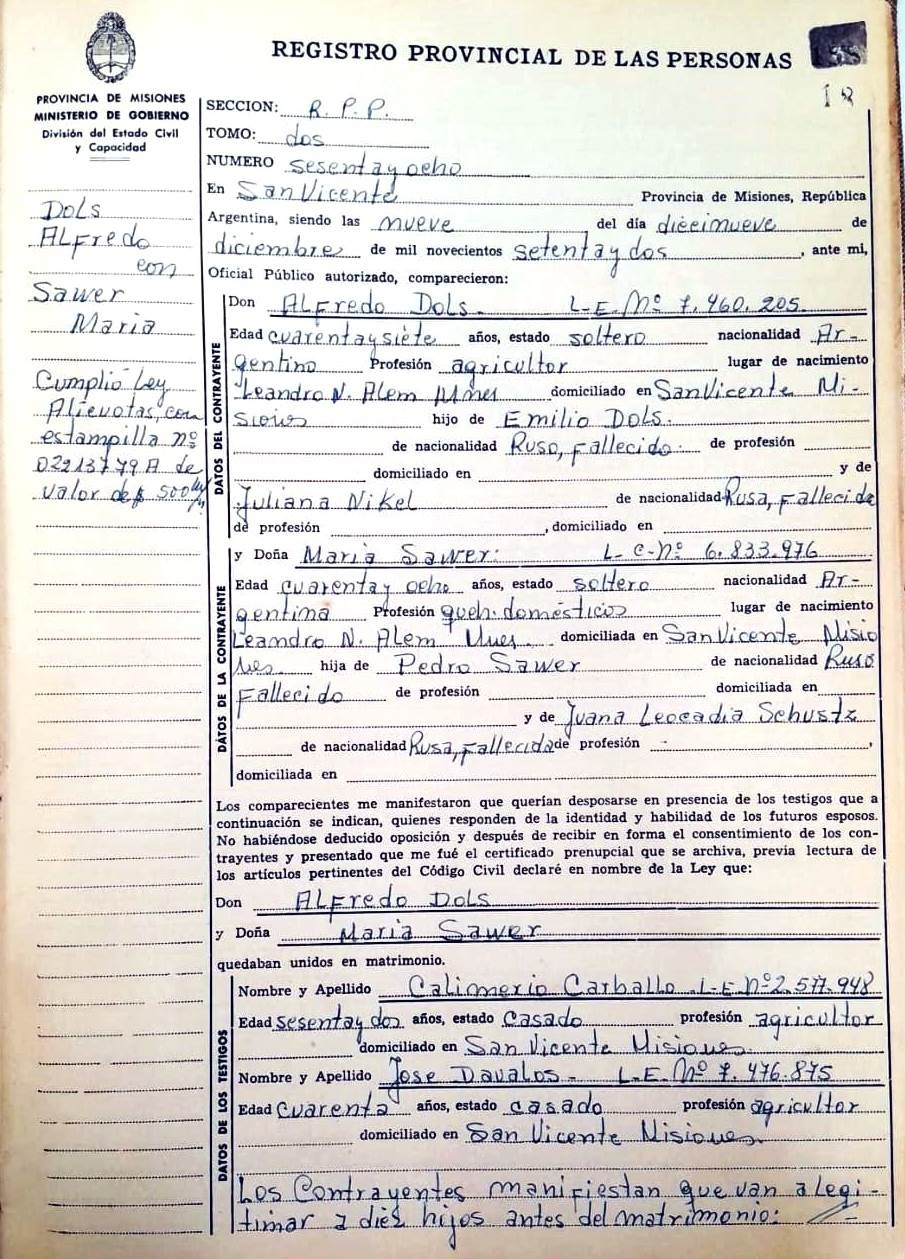 REGISTRO PROVINCIAL DE LAS PERSONAS
18
PROVINCIA DE MISIONES
MINISTERIO DE GOBIERNO
División del Estado Civil
y Capacidad
DOLS
ALFredo
con
Sawer
Maria
Cumplió Ley
Alievotas, con
estampilla nº
02213779 A de
valor de $ 500
SECCION: R. P. P.
TOMO: dos
NUMERO sesenta y ocho
En San Vicente Provincia de Misiones, República
Argentina, siendo las nueve del día diecinueve de
diciembre de mil novecientos setenta y dos, ante mi,
Oficial Público autorizado, comparecieron:
DATOS DEL CONTRAYENTE
Don ALFredo DOLS. L-E. Nº 7.460.205
Edad cuarenta y siete años, estado soltero nacionalidad Ar-
gentino Profesión agricultor lugar de nacimiento
Leandro N. Alem Mnes domiciliado en San Vicente Mi-
siones hijo de Emilio DOLS.
de nacionalidad Ruso, Fallecido. de profesión
domiciliado en y de
Juliana Nikel de nacionalidad Rusa, Fallecida
de profesión , domiciliado en
DATOS DE LA CONTRAYENTE
y Doña Maria Sawer: L-C-Nº 6.833.976
Edad cuarenta y ocho años, estado soltero nacionalidad Ar-
gentina Profesión queh. domésticos lugar de nacimiento
Leandro N. Alem Mnes domiciliada en San Vicente Misio
nes hija de Pedro Sawer de nacionalidad Ruso
Fallecido de profesión domiciliada en
y de Juana Leocadia Schustz
de nacionalidad Rusa, Fallecida de profesión - ,
domiciliada en
Los comparecientes me manifestaron que querían desposarse en presencia de los testigos que a
continuación se indican, quienes responden de la identidad y habilidad de los futuros esposos.
No habiéndose deducido oposición y después de recibir en forma el consentimiento de los con-
trayentes y presentado que me fué el certificado prenupcial que se archiva, previa lectura de
los artículos pertinentes del Código Civil declaré en nombre de la Ley que:
Don ALFredo DOLS
y Doña Maria Sawer
quedaban unidos en matrimonio.
DATOS DE LOS TESTIGOS
Nombre y Apellido Calimerio Carballo L-E.Nº 2.577.948
Edad sesenta y dos años, estado casado profesión agricultor
domiciliado en San Vicente Misiones.
Nombre y Apellido Jose Davalos - L.E. Nº 7.476.875
Edad cuarenta años, estado casado profesión agricultor
domiciliado en San Vicente Misiones.
Los Contrayentes manifiestan que van a legi-
timar a diez hijos antes del matrimonio: